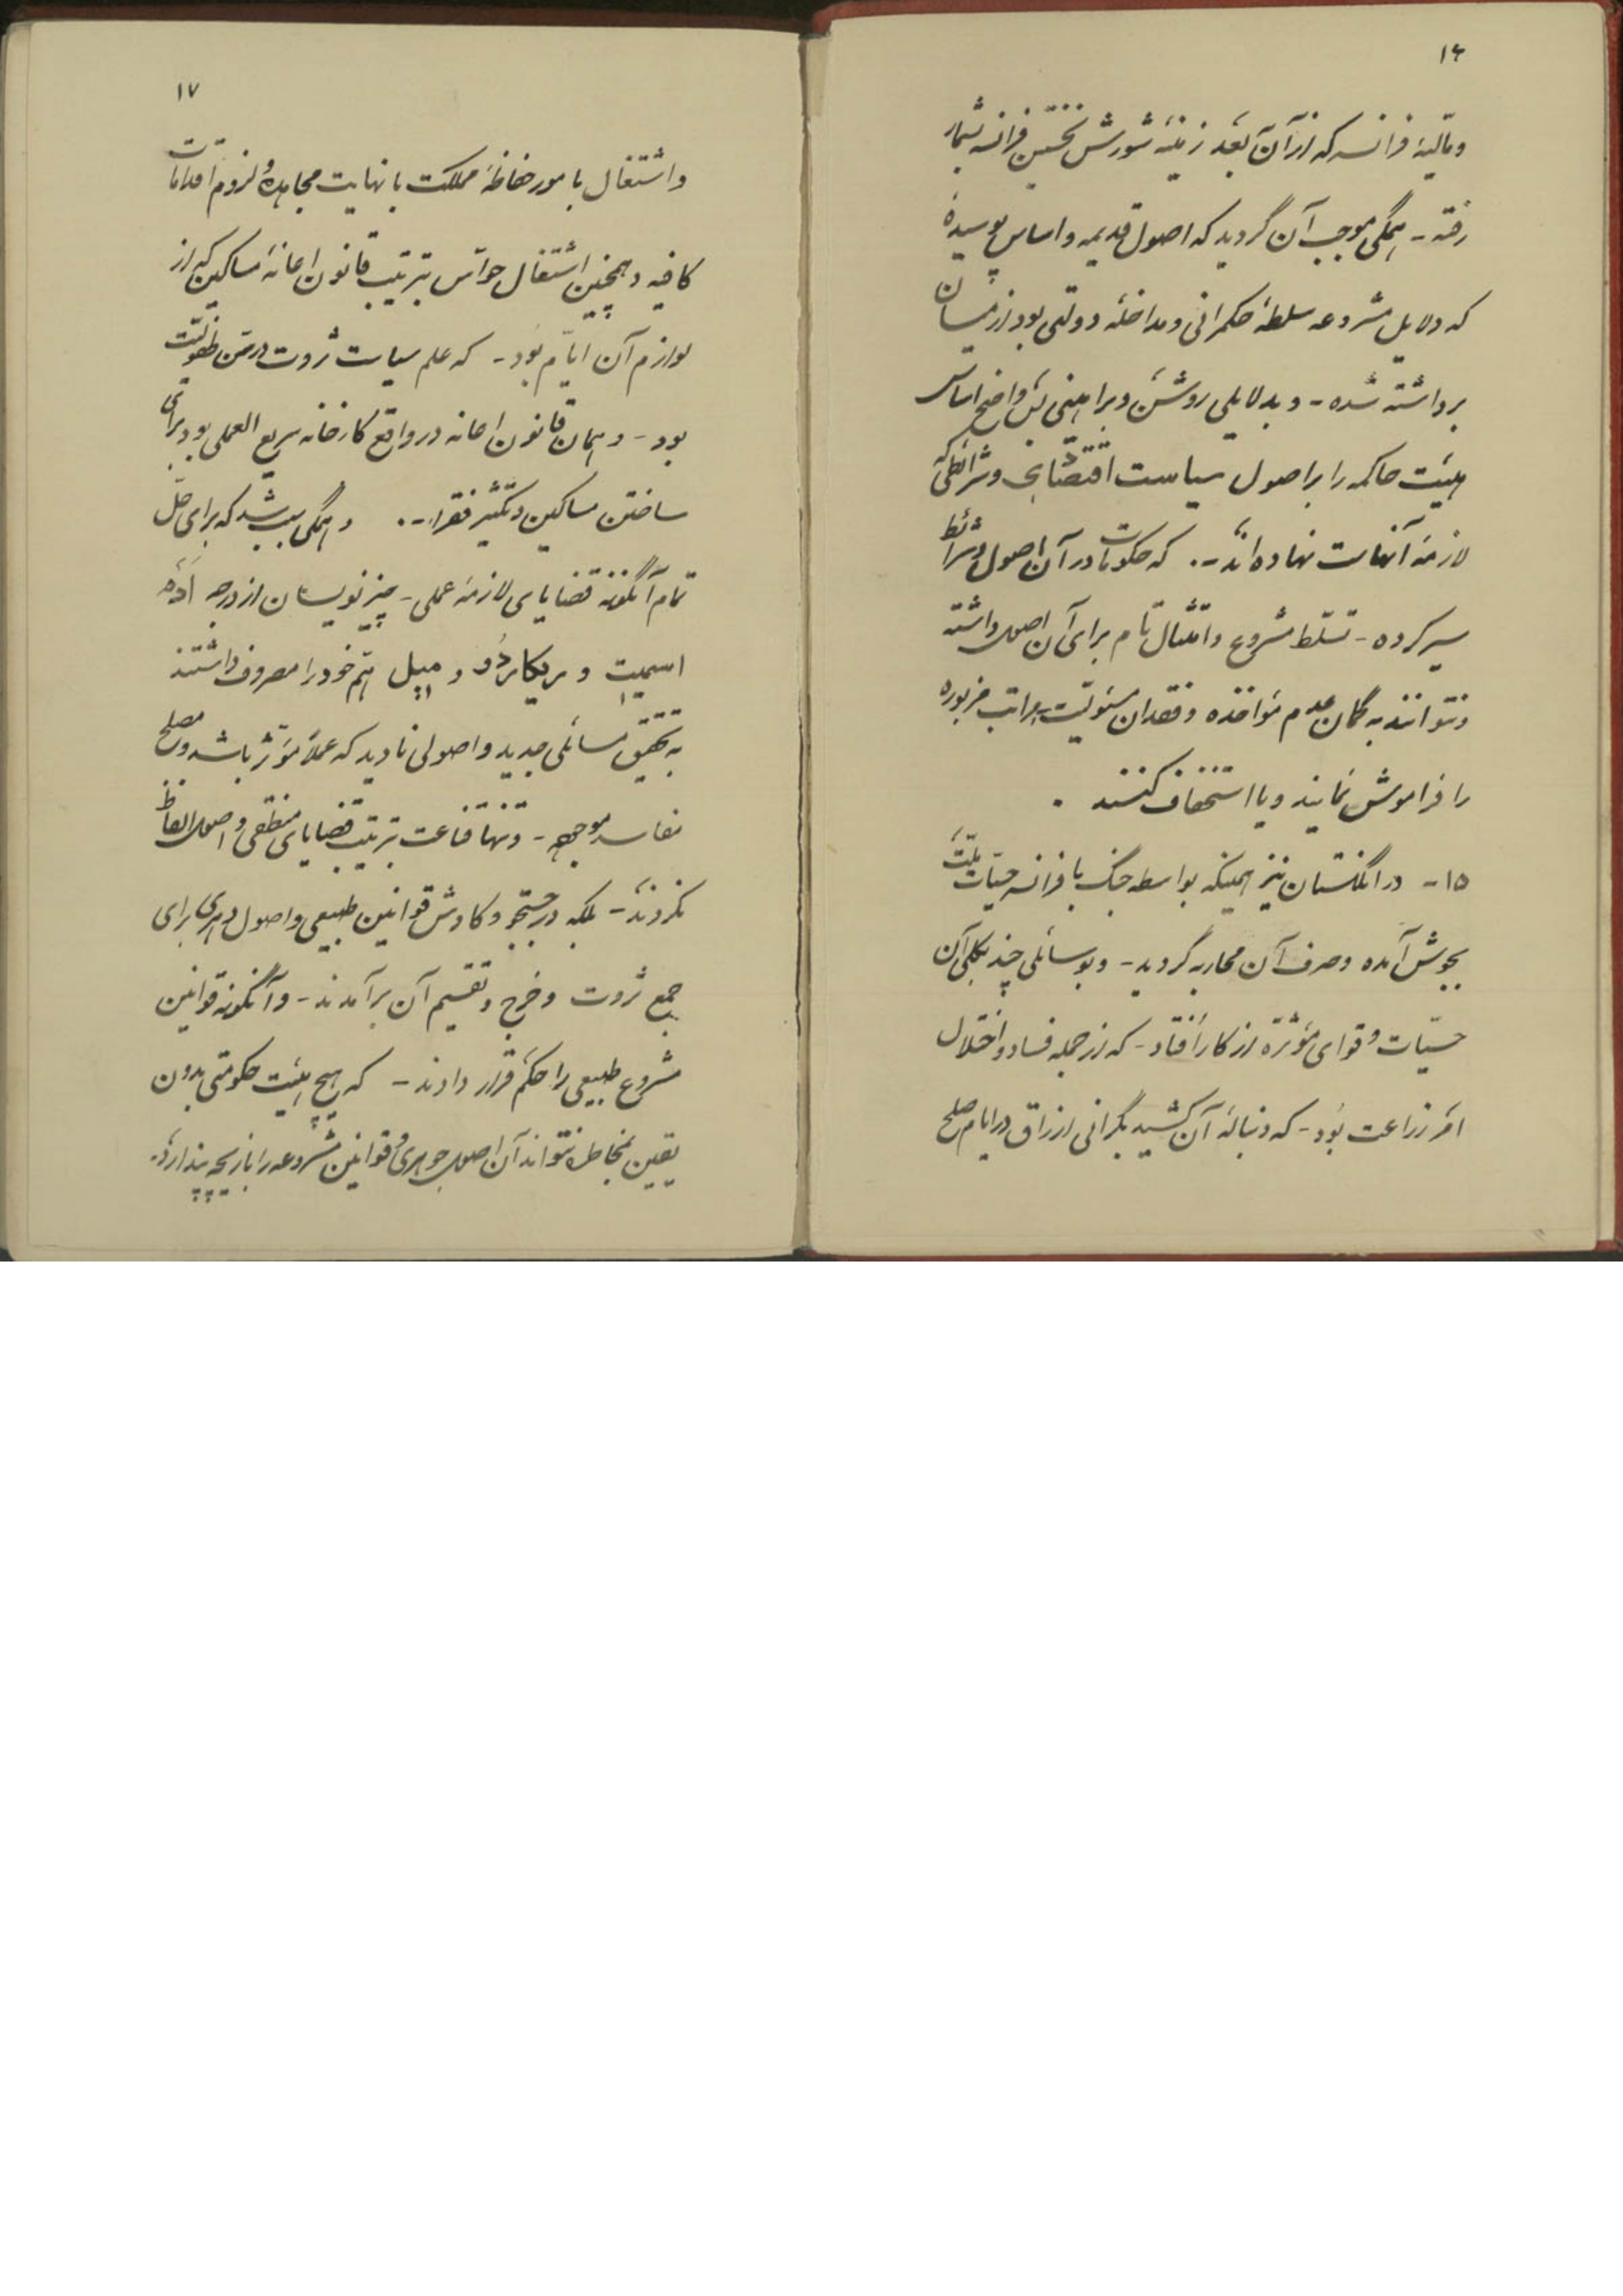 ۱۶
و مالیهٔ فرانسه که از آن بعد زمینهٔ شورش نخستین فرانسه بشمار
رفته - همگی موجب آن گردید که اصول قدیمه و اساس پوسیدهٔ
که دلایل مشروعه سلطهٔ حکمرانی و مداخلهٔ دولتی بود از میان
برداشته شده - و بدلایلی روشن و براهینی بس واضح اساس
هیئت حاکمه را بر اصول سیاست اقتصادی و شرائطی که
لازمهٔ آنهاست نهاده‌اند -. که حکومات در آن اصول و شرائط
سیر کرده - تسلط مشروع و امتثال تام برای آن اصول داشته
و نتوانند به گمان عدم مؤاخذه و فقدان مسئولیت مراتب مزبوره
را فراموش نمایند و یا استخفاف کنند .
۱۵- در انگلستان نیز همینکه بواسطه جنگ با فرانسه حسیات ملت
بجوش آمده و صرف آن محاربه گردید - و بوسائلی چند بکلی آن
حسیات و قوای مؤثره از کار افتاد - که از جمله فساد و اختلال
امر زراعت بود - که دنبالهٔ آن کشید بگرانی ارزاق در ایام صلح
۱۷
و اشتغال بامور حفاظهٔ مملکت با نهایت مجاهده و لزوم اقدامات
کافیه و همچنین اشتغال حواس بترتیب قانون اعانهٔ مساکین که از
لوازم آن ایام بود - که علم سیاست ثروت در سن طفولیت
بود - و همان قانون اعانه در واقع کارخانه سریع العملی بود برای
ساختن مساکین و تکثیر فقراء -. و همگی سبب شد که برای حل
تمام آنگونه قضایای لازمهٔ عملی - چیز نویسان از درجه آدم
اسمیت و ریکاردو و میل هم خود را مصروف داشتند
به تحقیق مسائلی جدید و اصولی نادید که عملاً مؤثر باشد و مصلح
مفاسد موجهه - و تنها قناعت بترتیب قضایای منطقی و اصول الفاظ
نکردند - بلکه در جستجو و کاوش قوانین طبیعی و اصول دهری برای
جمع ثروت و خرج و تقسیم آن برآمدند - و آنگونه قوانین
مشروع طبیعی را حکم قرار دادند - که هیچ هیئت حکومتی بدون
یقین بمخاطره نتواند آن اصول جوهری و قوانین مشروعه را بازیچه پندارد.